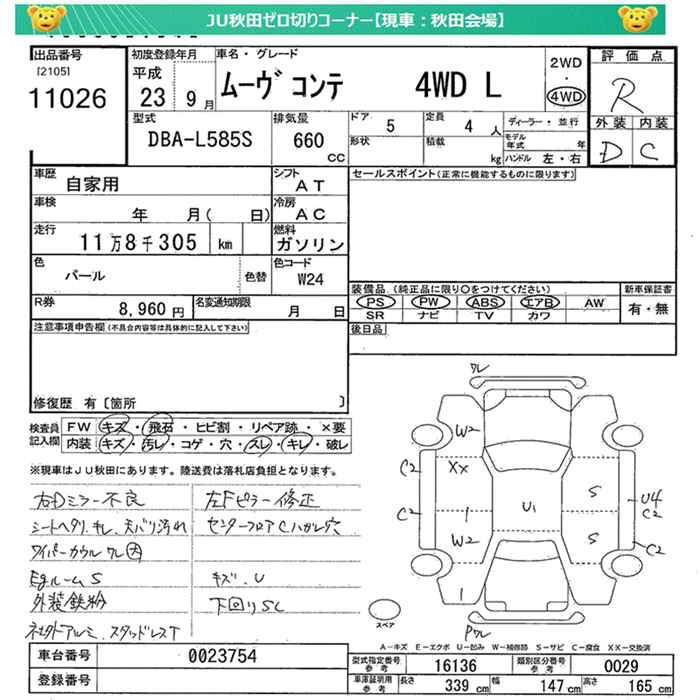 JU秋田ゼロ切りコーナー【現車：秋田会場】
出品番号
[2105]
11026
初度登録年月
平成
23 9月
車名・グレード
ムーヴ コンテ 4WD L
2WD
・
4WD
評価点
R
外装 内装
D C
型式
DBA-L585S
排気量
660
CC
ドア
5
形状
定員
4 人
積載
kg
ディーラー・並行
モデル年式 年
ハンドル 左・右
車歴
自家用
シフト
AT
セールスポイント(正常に機能するものに限ります)
車検
年 月( 日)
冷房
AC
走行
11万8千305 km
燃料
ガソリン
色
パール
色替
色コード
W24
R券
8,960円
名変通知期限
月 日
装備品(純正品に限り○をつけてください)
PS PW ABS エアB AW
SR ナビ TV カワ
新車保証書
有・無
注意事項申告欄(不具合内容等は具体的に記入して下さい)
後日品
修復歴 有〔箇所 〕
検査員記入欄
FW キズ・飛石・ヒビ割・リペア跡・×要
内装 キズ・汚レ・コゲ・穴・スレ・キレ・破レ
※現車はJU秋田にあります。陸送費は落札店負担となります。
右Dミラー不良
左Fピラー修正
シートヘタリ、キレ、天バリ汚れ
センターフロアCハガレ穴
ワイパーカウルワレ内
EgルームS
キズ、U
外装鉄粉
下回りSC
社外アルミ、スタッドレスT
ワレ
W2
C2
XX
S
U1
U4
C2
C2
1
W2
S
C2
1
Pワレ
スペア
A-キズ E-エクボ U-凹み W-補修跡 S-サビ C-腐食 XX-交換済
車台番号
0023754
登録番号
型式指定番号
参考
16136
類別区分番号
参考
0029
車庫証明用
参考
長さ
339 cm
幅
147 cm
高さ
165 cm